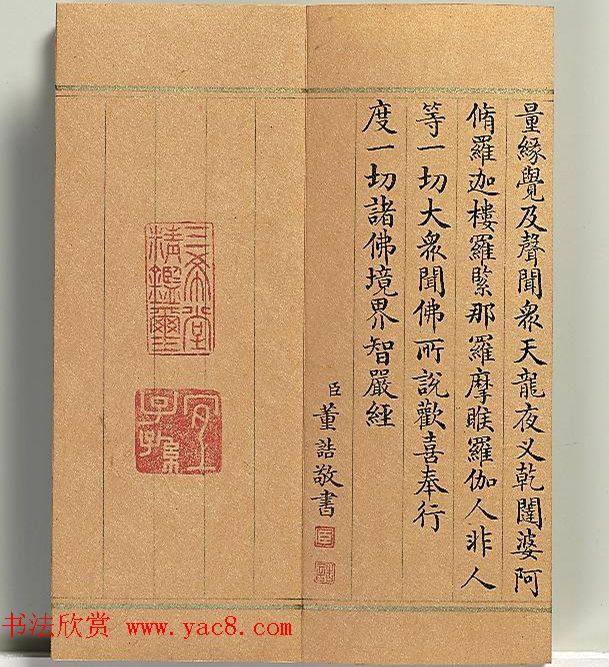 量緣覺及聲聞衆天龍夜乂乾闥婆阿
脩羅迦樓羅緊那羅摩睺羅伽人非人
等一切大衆聞佛所說歡喜奉行
度一切諸佛境界智嚴經
臣董誥敬書
臣
誥
三希堂
精鑑璽
宜
子孫
书法欣赏 www.yac8.com